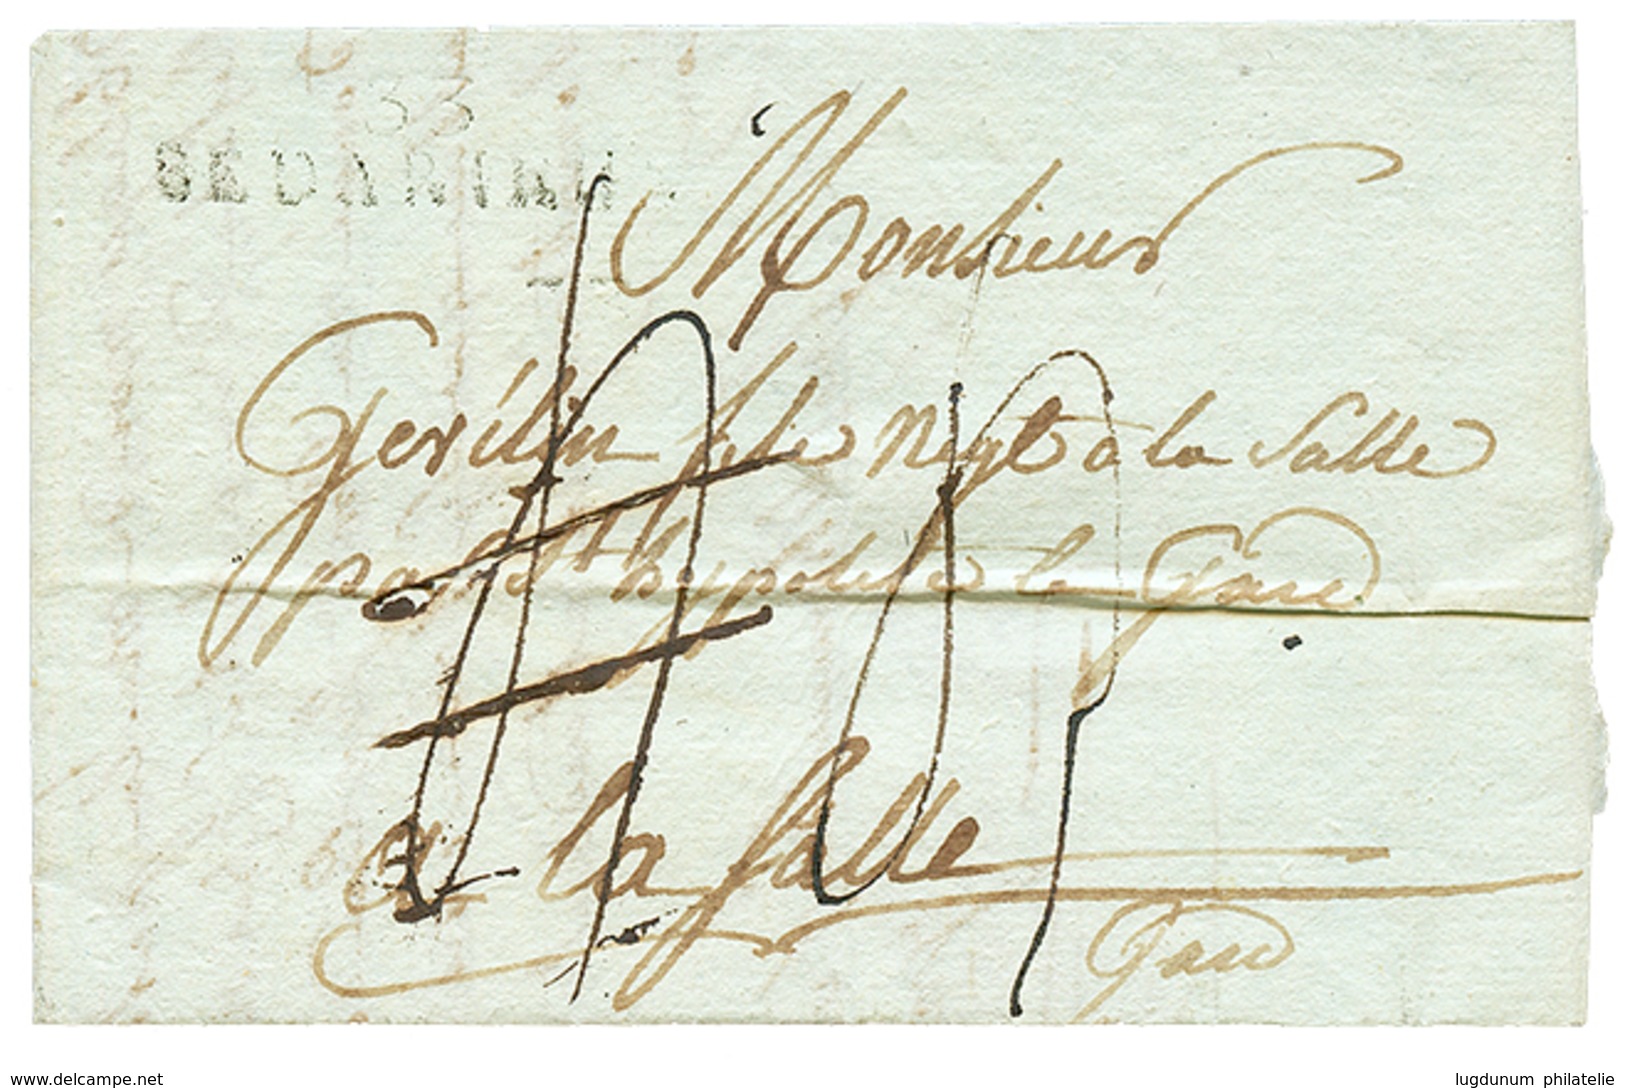 33
BEDARIEUX
Monsieur
fils Negt a la Salle
par St hypolite le Gard
a la Salle
Gard
www.delcampe.net
lugdunum philatelie